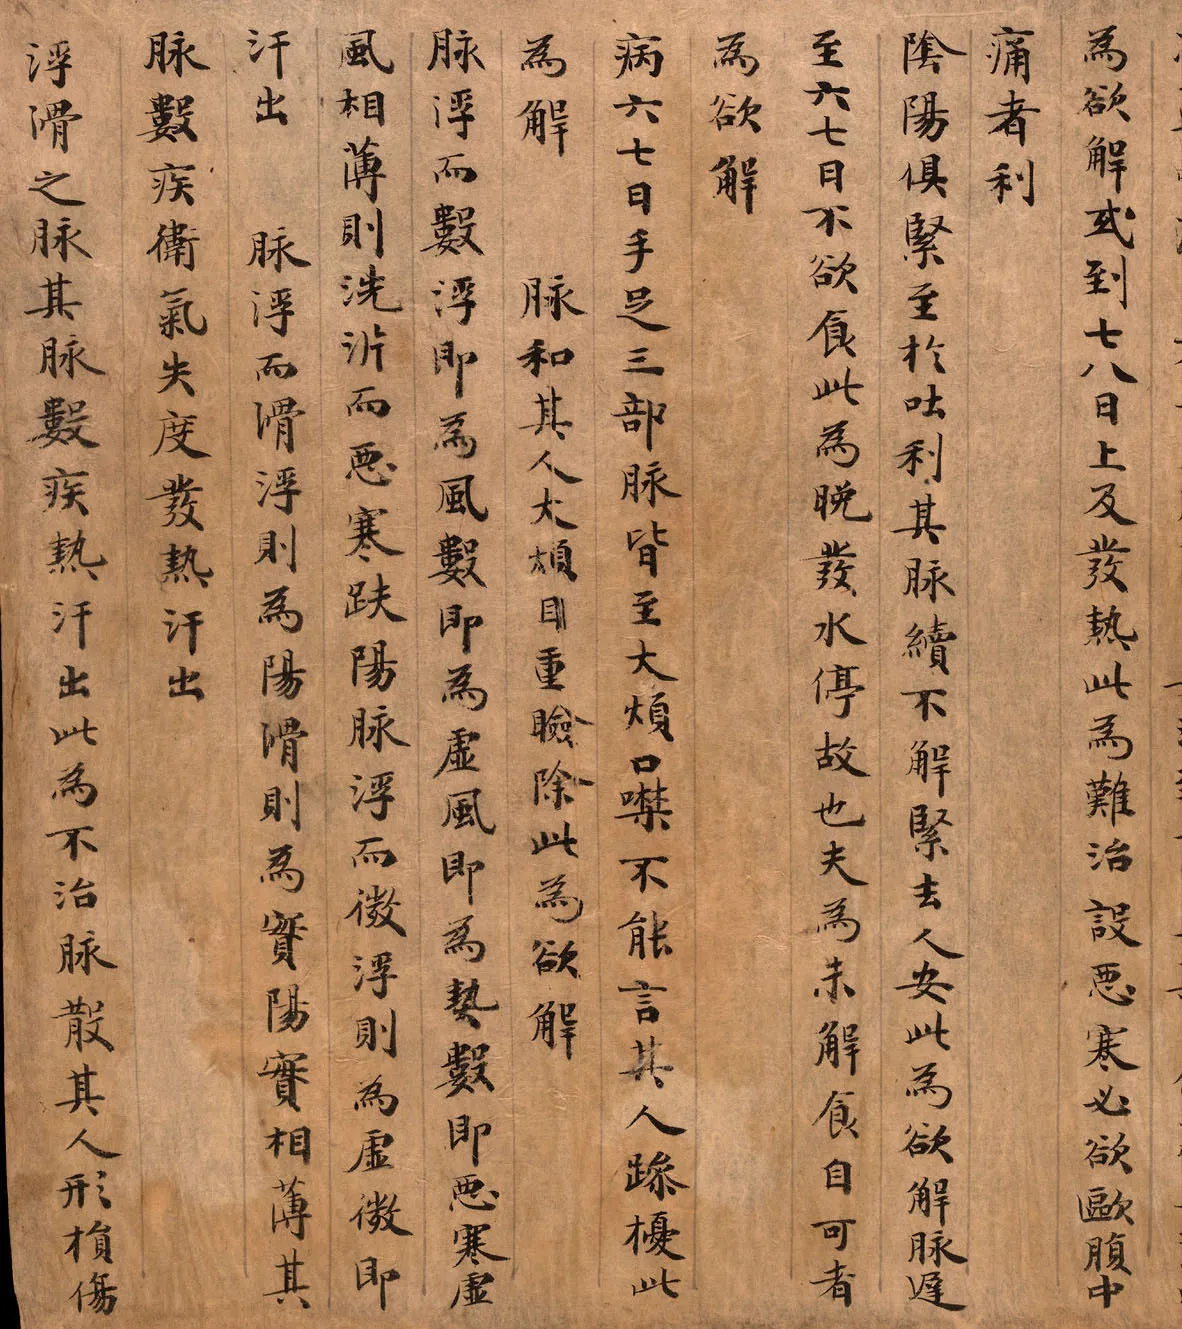 為欲解或到七八日上及發熱此為難治設惡寒必欲歐腹中
痛者利
陰陽俱緊至於吐利其脉續不解緊去人安此為欲解脉遲
至六七日不欲食此為晚發水停故也夫為未解食自可者
為欲解
病六七日手足三部脉皆至大煩口噤不能言其人躁擾此
為解 脉和其人大煩目重瞼除此為欲解
脉浮而數浮即為風數即為虛風即為熱數即惡寒虛
風相薄則洗泝而惡寒趺陽脉浮而微浮則為虛微即
汗出 脉浮而滑浮則為陽滑則為實陽實相薄其
脉數疾衛氣失度發熱汗出
浮滑之脉其脉數疾熱汗出此為不治脉散其人形損傷